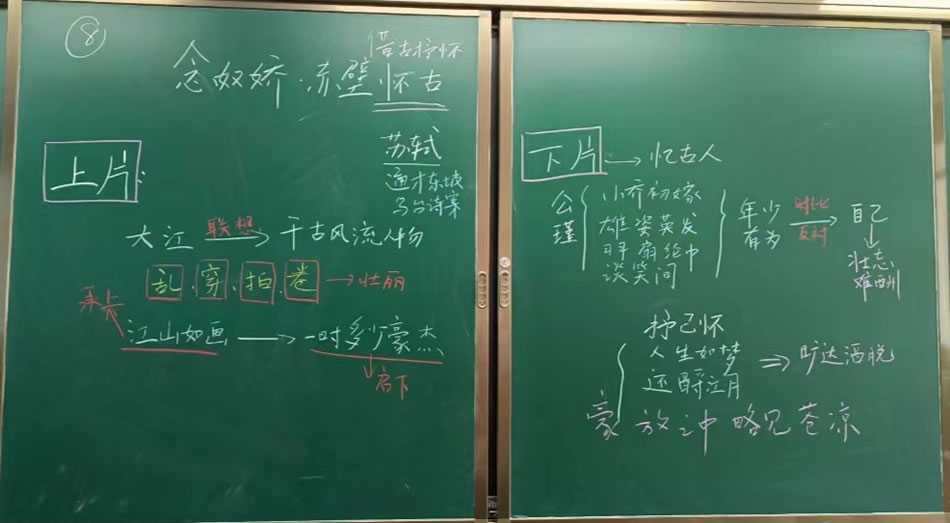 ⑧
借古抒怀
念奴娇·赤壁怀古
苏轼
通才东坡
乌台诗案
上片:
大江 联想 千古风流人物
乱.穿.拍.卷 壮丽
承上
江山如画 一时多少豪杰
启下
下片 忆古人
公瑾
小乔初嫁
雄姿英发
羽扇纶巾
谈笑间
年少
有为
对比
反衬
自己
壮志
难酬
抒己怀
人生如梦
还酹江月
旷达洒脱
豪放之中略见苍凉